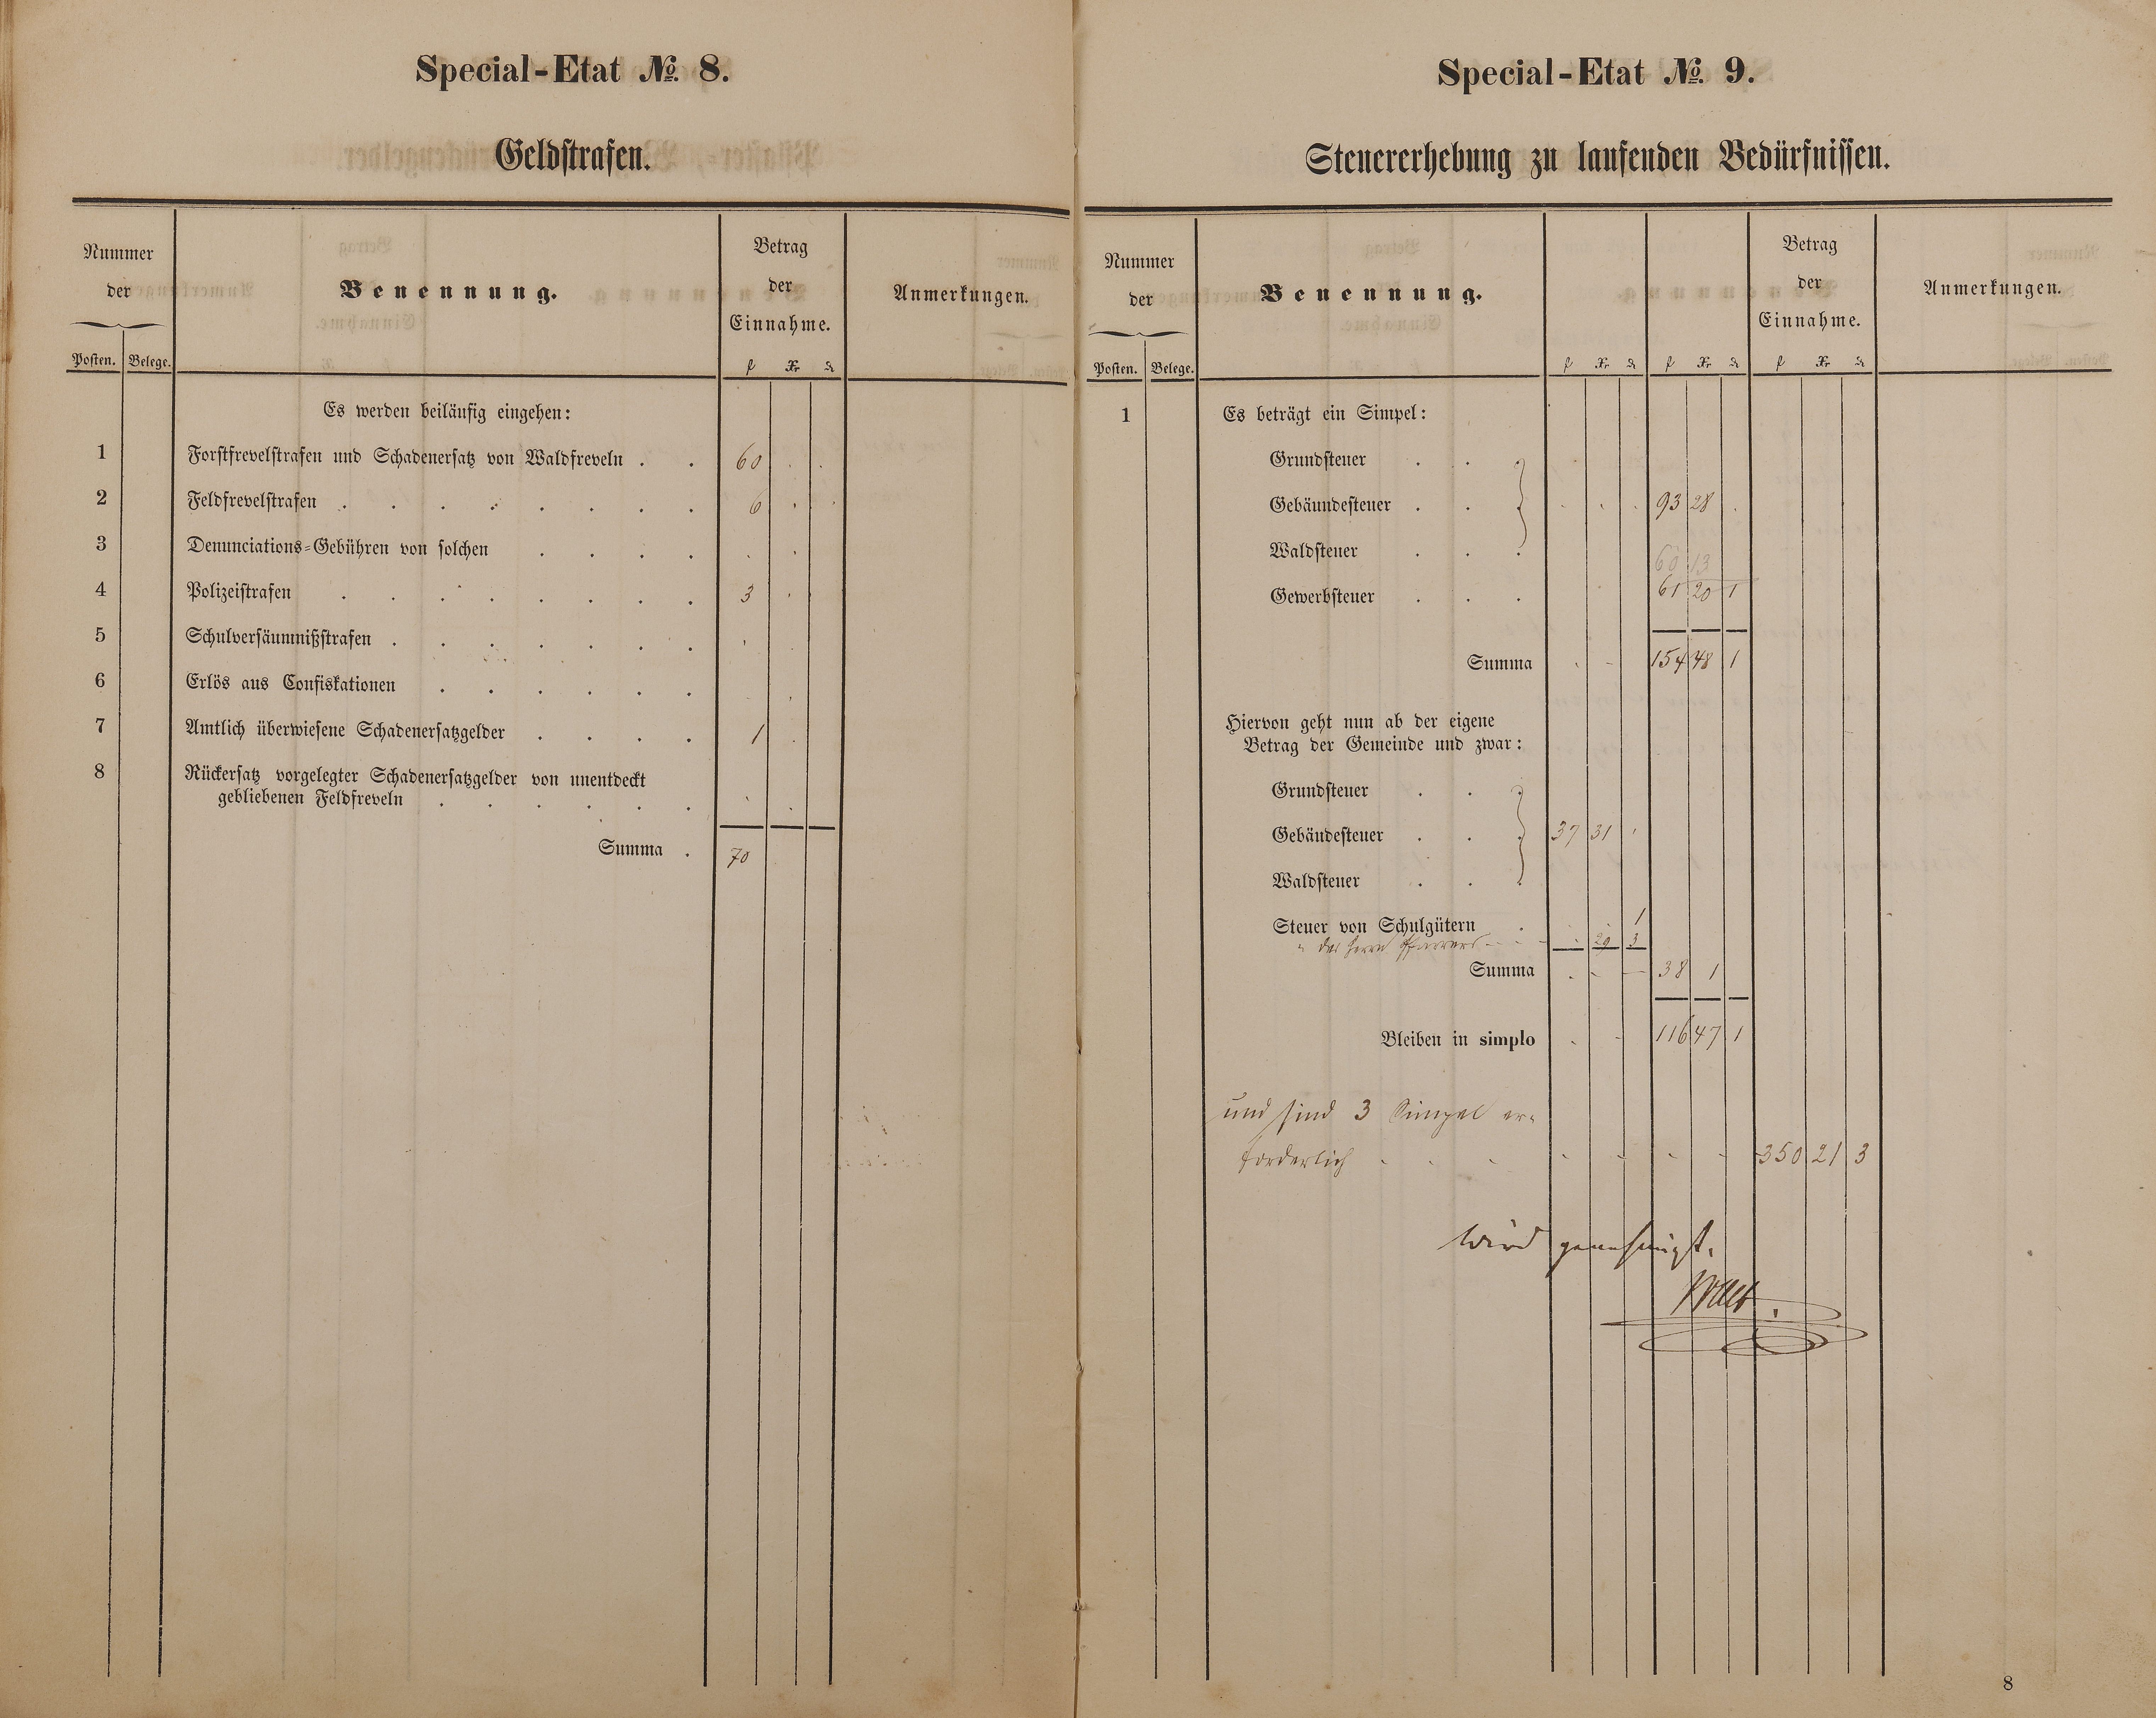 Special-Etat № 8.
Geldstrafen.
Nummer der
Posten. Belege.
Benennung.
Betrag der Einnahme.
f Xr ₰
Anmerkungen.
Es werden beiläufig eingehen:
1 Forstfrevelstrafen und Schadenersatz von Waldfreveln . . 60 . .
2 Feldfrevelstrafen . . . . . . . . 6 . .
3 Denunciations-Gebühren von solchen . . . . . .
4 Polizeistrafen . . . . . . . . 3 .
5 Schulversäumnißstrafen . . . . . . . .
6 Erlös aus Confiskationen . . . . . . .
7 Amtlich überwiesene Schadenersatzgelder . . . . 1 .
8 Rückersatz vorgelegter Schadenersatzgelder von unentdeckt
gebliebenen Feldfreveln . . . . . . . .
Summa . 70
Special-Etat № 9.
Steuererhebung zu laufenden Bedürfnissen.
Nummer der
Posten. Belege.
Benennung.
f Xr ₰ f Xr ₰
Betrag der Einnahme.
f Xr ₰
Anmerkungen.
1 Es beträgt ein Simpel:
Grundsteuer . .
Gebäundesteuer . . } . . . 93 28 .
Waldsteuer . . .
60 13
Gewerbsteuer . . . 61 20 1
Summa . - 154 48 1
Hiervon geht nun ab der eigene
Betrag der Gemeinde und zwar:
Grundsteuer . .
Gebäudesteuer . . } 37 31 .
Waldsteuer . .
Steuer von Schulgütern . . . 1
" des Herrn Pfarrers - - - . 29 3
Summa . - - 38 1
Bleiben in simplo . - 116 47 1
und sind 3 Simpel er-
forderlich - . - - - - - 350 21 3
Wird genehmigt.
8